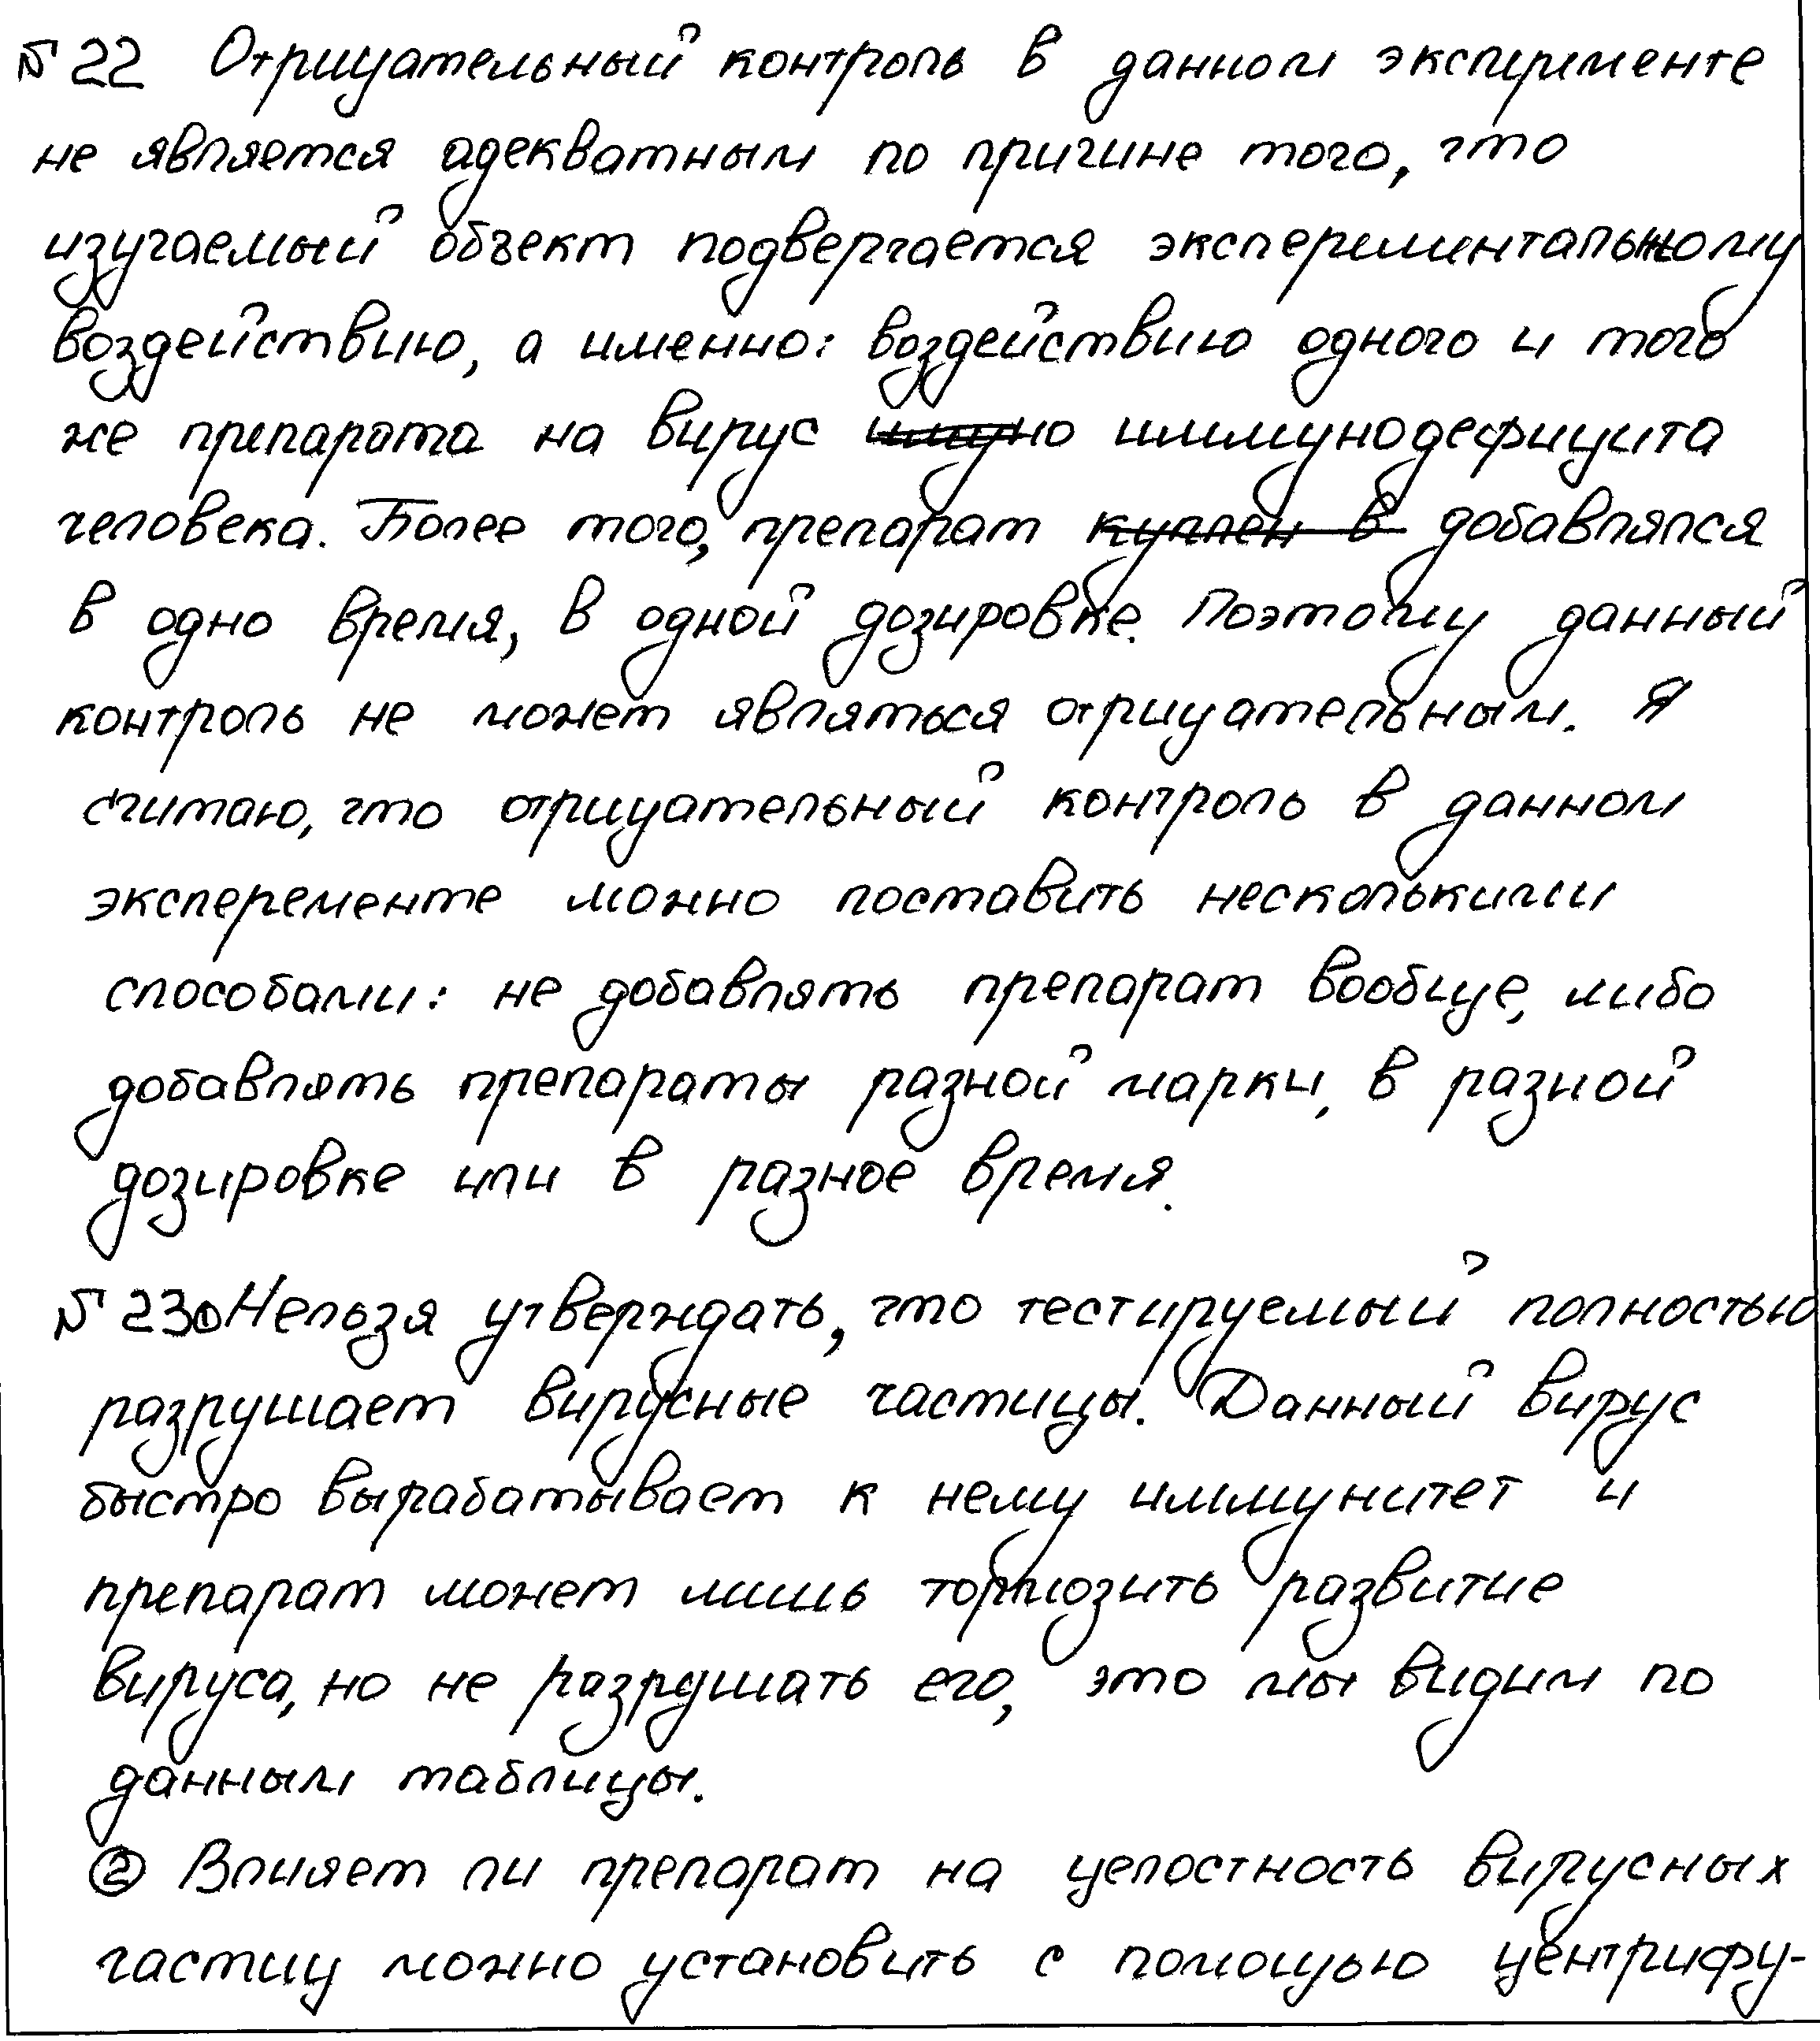 № 22 Отрицательный контроль в данном эксперименте
не является адекватным по причине того, что
изучаемый объект подвергается экспериментальному
воздействию, а именно: воздействию одного и того
же препарата на вирус иммуно иммунодефицита
человека. Более того, препарат куплен в добавлялся
в одно время, в одной дозировке. Поэтому данный
контроль не может являться отрицательным. Я
считаю, что отрицательный контроль в данном
эксперементе можно поставить несколькими
способами: не добавлять препарат вообще, либо
добавлять препараты разной марки, в разной
дозировке или в разное время.
№ 23 ① Нельзя утверждать, что тестируемый полностью
разрушает вирусные частицы. Данный вирус
быстро вырабатывает к нему иммунитет и
препарат может лишь тормозить развитие
вируса, но не разрушать его, это мы видим по
данным таблицы.
② Влияет ли препарат на целостность вирусных
частиц можно установить с помощью центрифу-